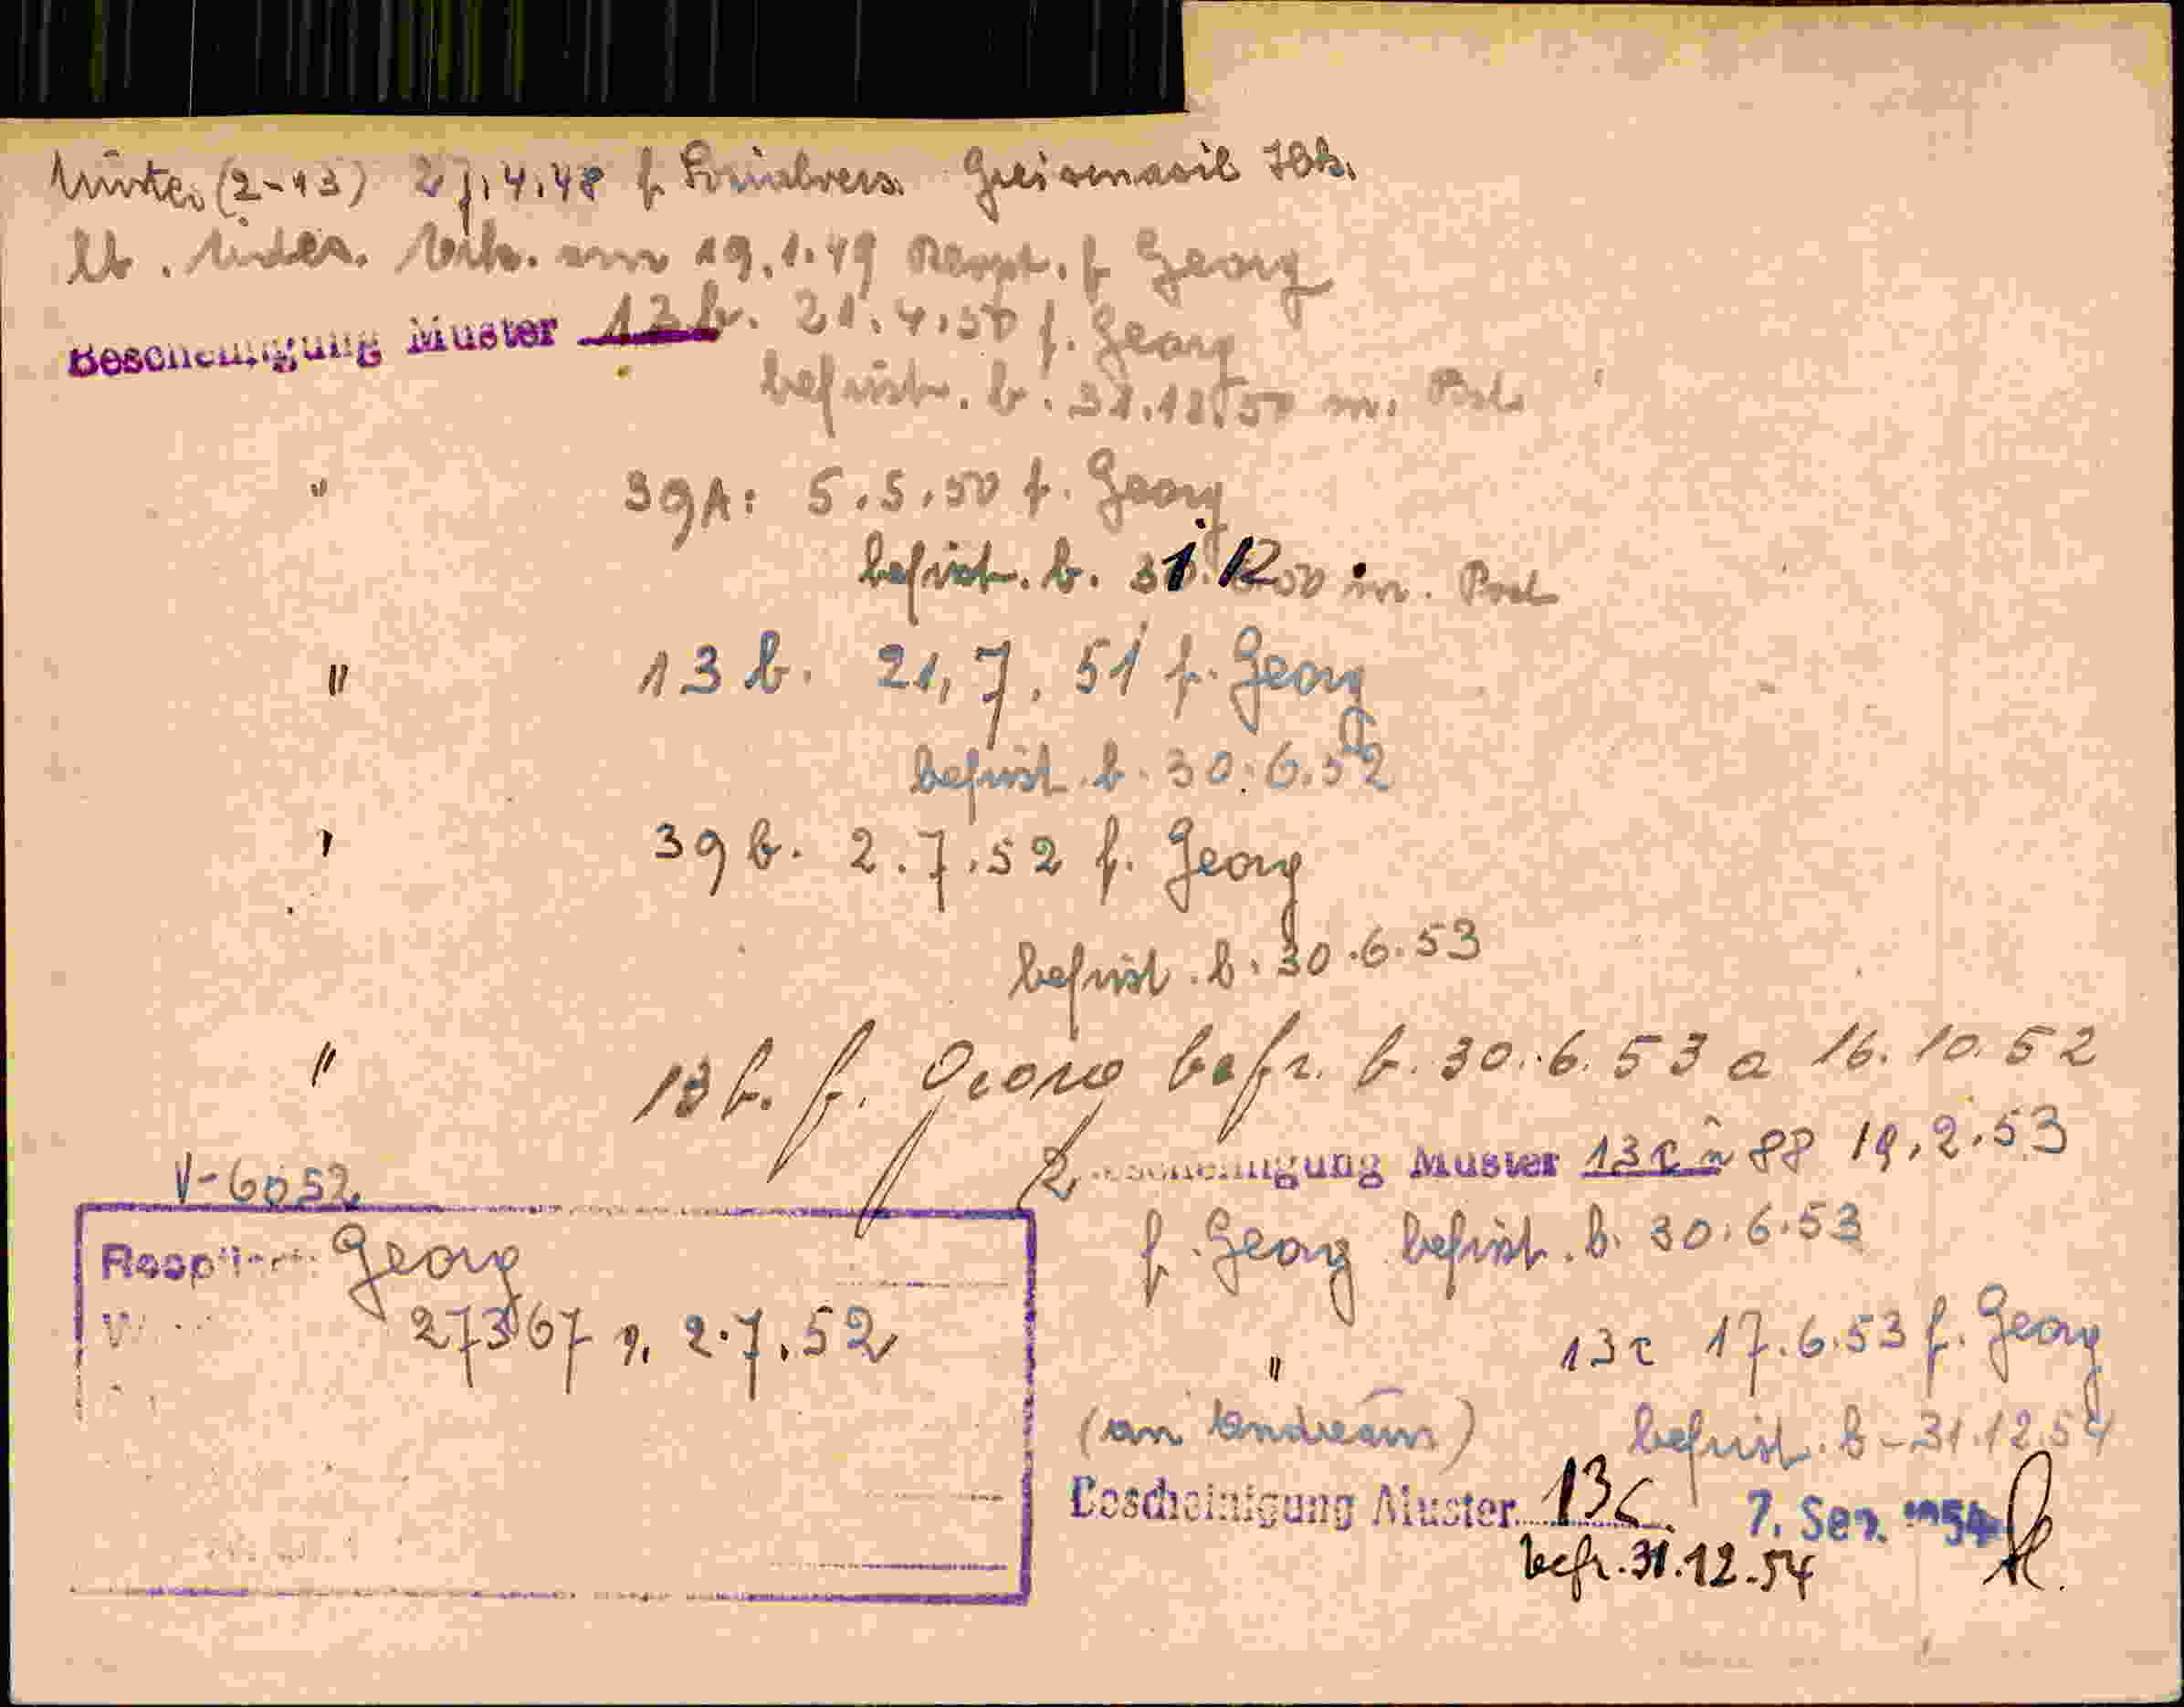 Muster (2-13) 27.4.48 f. Sozialvers. Greisenasil Ibk.
lt. am 19.1.49 Respt. f Georg
Bescheinigung Muster 13 b. 21.4.50 f. Georg
befrist. b. 31.12.50 m. Post
" 39A: 5.5.50 f. Georg
befrist. b. 31.12.50 m. Post
" 13 b. 21.7.51 f. Georg
befrist. b. 30.6.52
" 39 b. 2.7.52 f. Georg
befrist. b. 30.6.53
" 13 b. f. Georg befr. b. 30.6.53 a 16.10.52
Bescheinigung Muster 13 c 88 19.2.53
f. Georg befrist. b. 30.6.53
" 13c 17.6.53 f. Georg
(an Andreas) befrist. b. 31.12.54
Bescheinigung Muster 13c 7. Sep. 1954
befr. 31.12.54
V-6052
Respizient Georg
27367 v. 2.7.52